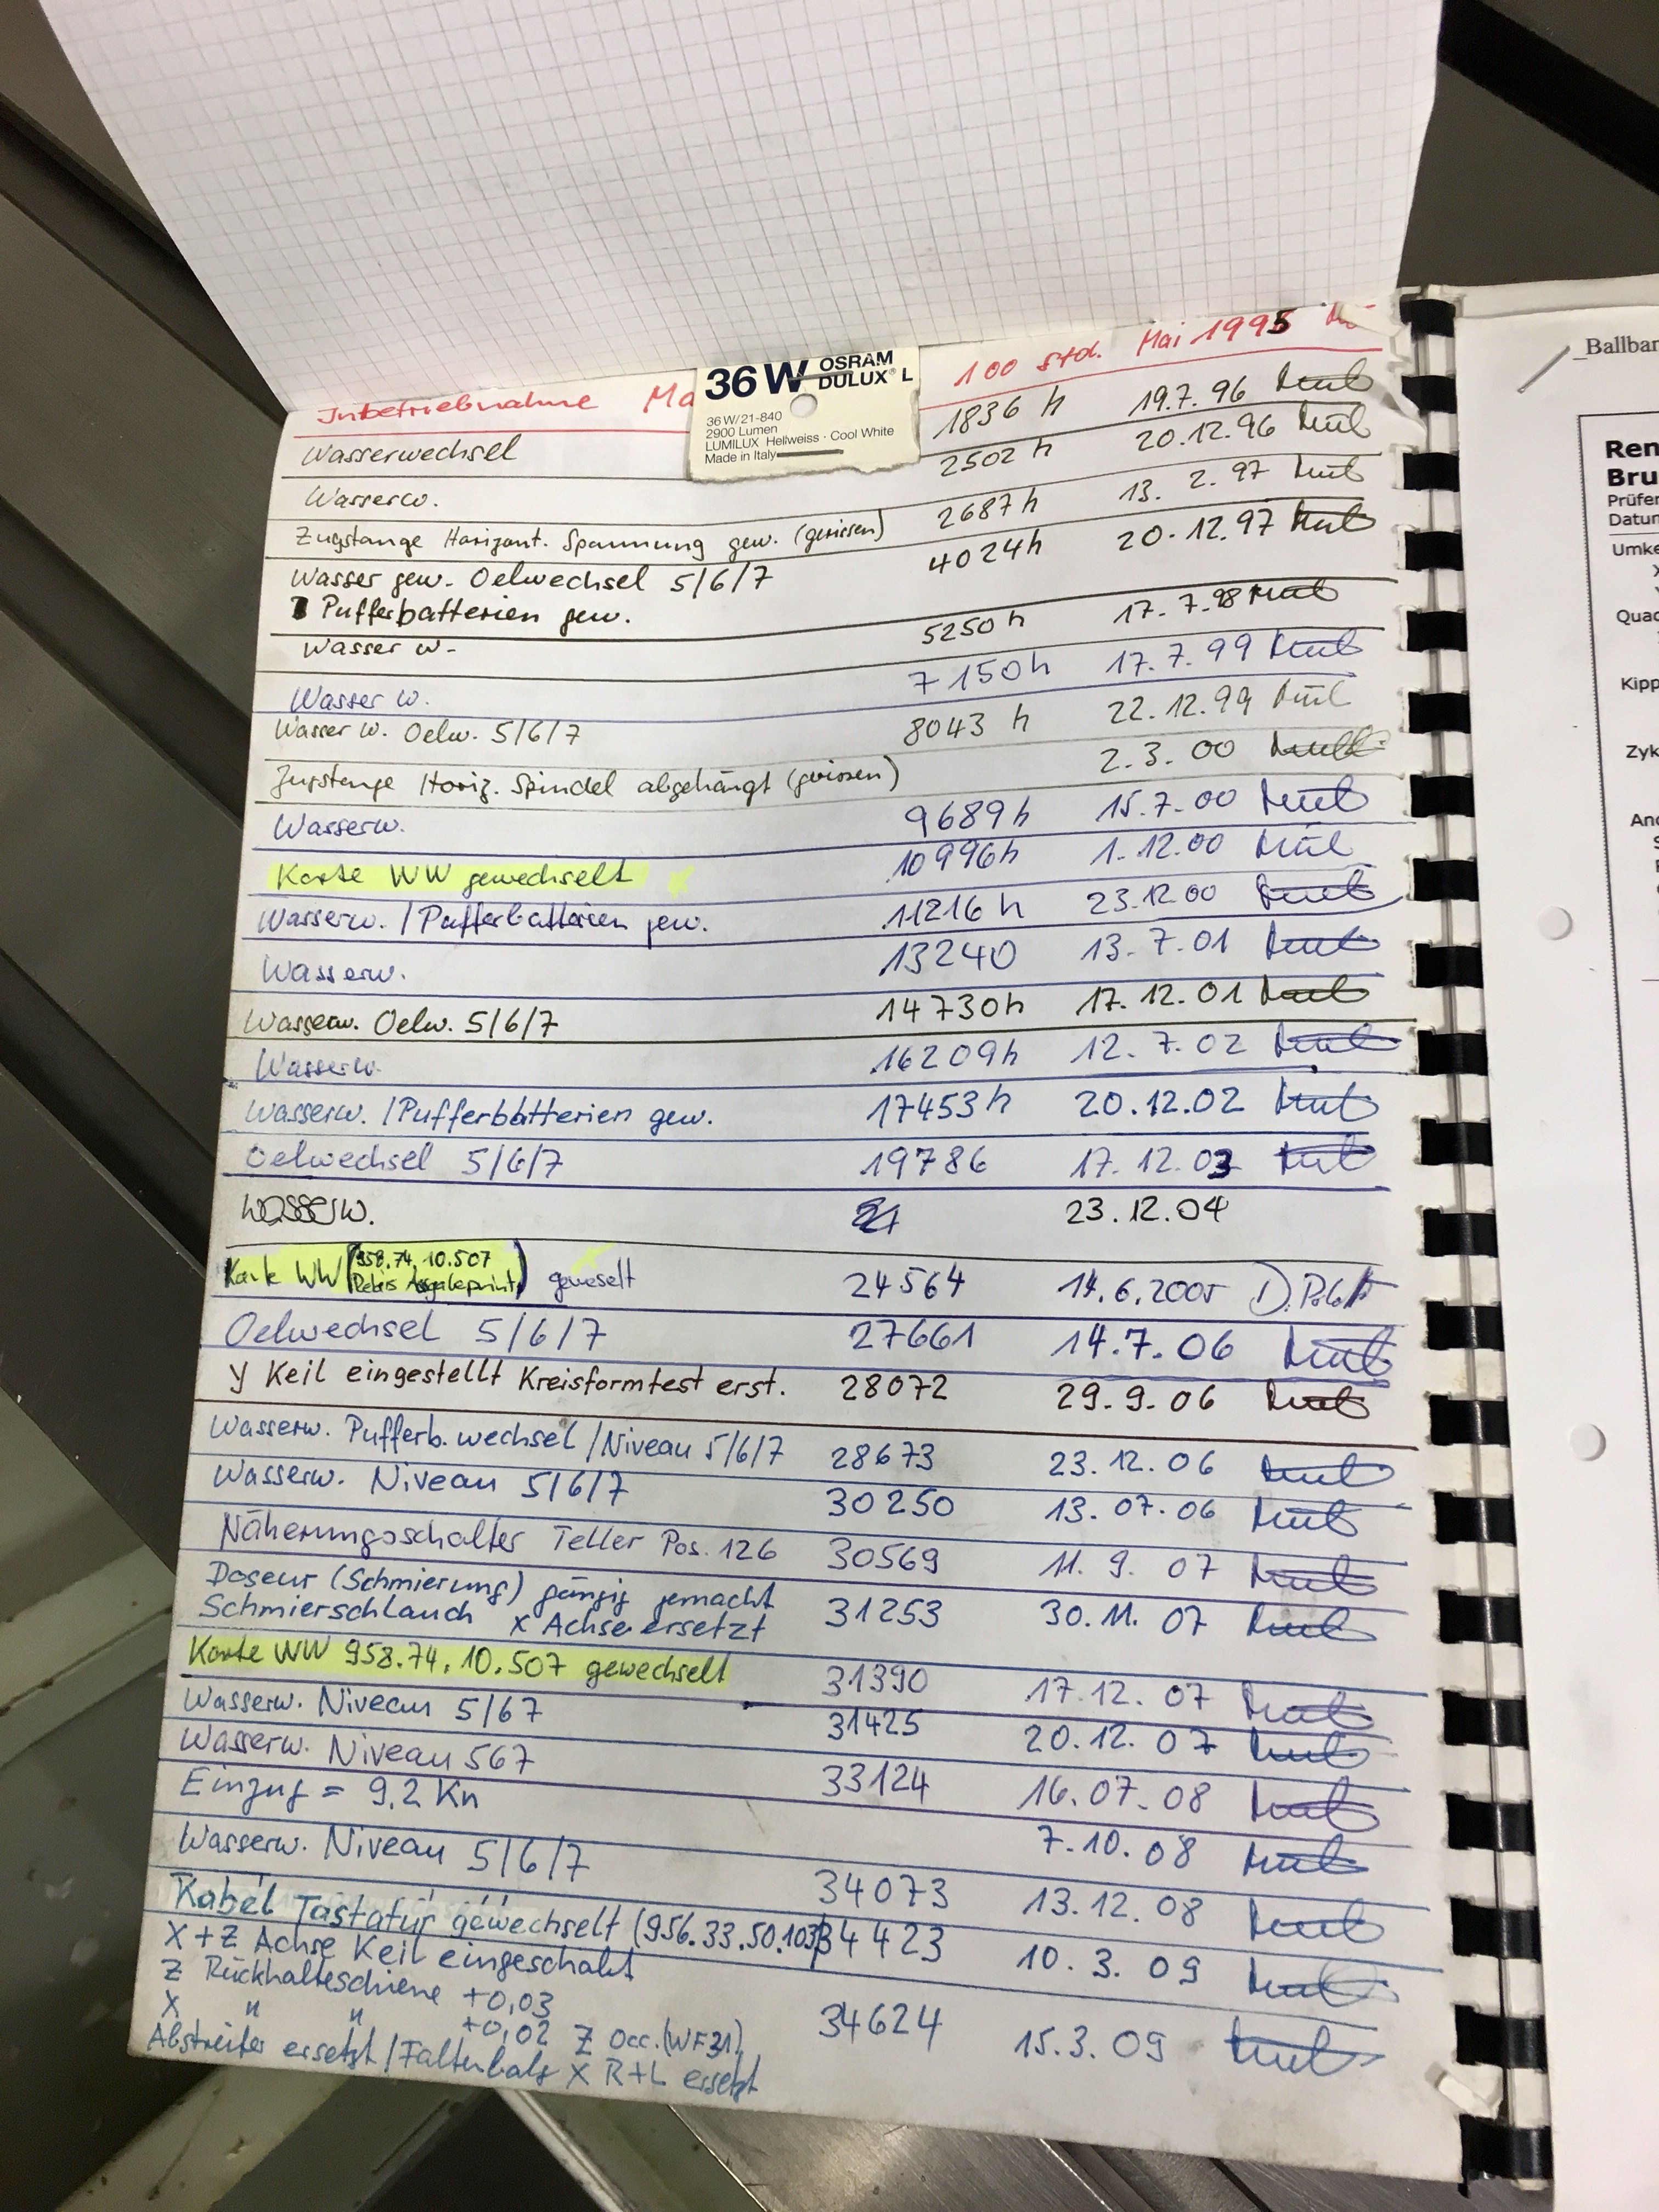 Inbetriebnahme Ma 100 Std. Mai 1995
36 W OSRAM DULUX® L
36 W/21-840
2900 Lumen
LUMILUX Hellweiss · Cool White
Made in Italy
Wasserwechsel 1836 h 19.7.96
Wasserw. 2502 h 20.12.96
Zugstange Horizont. Spannung gew. (gerissen) 2687 h 13. 2. 97
Wasser gew. Oelwechsel 5/6/7 4024h 20.12.97
Pufferbatterien gew.
Wasser w. 5250 h 17. 7.98
Wasser w. 7150h 17. 7. 99
Wasser w. Oelw. 5/6/7 8043 h 22.12.99
Zugstange Horiz. Spindel abgehängt (gerissen) 2. 3. 00
Wasserw. 9689h 15.7.00
Karte WW gewechselt 10996h 1.12.00
Wasserw. / Pufferbatterien gew. 11216 h 23.12.00
Wasserw. 13240 13. 7.01
Wasserw. Oelw. 5/6/7 14730h 17. 12. 01
Wasserw. 16209h 12. 7. 02
Wasserw. / Pufferbatterien gew. 17453h 20.12.02
Oelwechsel 5/6/7 19786 17. 12. 03
Wasserw. 23.12.04
Karte WW (958.74.10.507 geweselt 24564 14.6.2005
Oelwechsel 5/6/7 27661 14.7. 06
y Keil eingestellt Kreisformtest erst. 28072 29.9.06
Wasserw. Pufferb. wechsel / Niveau 5/6/7 28673 23.12.06
Wasserw. Niveau 5/6/7 30250 13.07.06
Näherungsschalter Teller Pos. 126 30569 11. 9. 07
Doseur (Schmierung) gängig gemacht
Schmierschlauch x Achse ersetzt 31253 30.11. 07
Karte WW 958.74.10.507 gewechselt 31390 17.12. 07
Wasserw. Niveau 5/67 31425 20.12. 07
Wasserw. Niveau 567 33124 16.07.08
Einzug = 9,2 Kn 7.10. 08
Wasserw. Niveau 5/6/7 34073 13.12. 08
Kabel Tastatur gewechselt (956.33.50.103) 34423 10. 3. 09
X + Z Achse Keil eingeschabt
Z Rückhalteschiene +0,03
X " " +0,02 Z Occ. (WF31) 34624 15.3. 09
Abstreifer ersetzt / Faltenbalg X R+L ersetzt
Ballbar
Ren
Bru
Prüfer
Datum
Umke
Quad
Kipp
Zyk